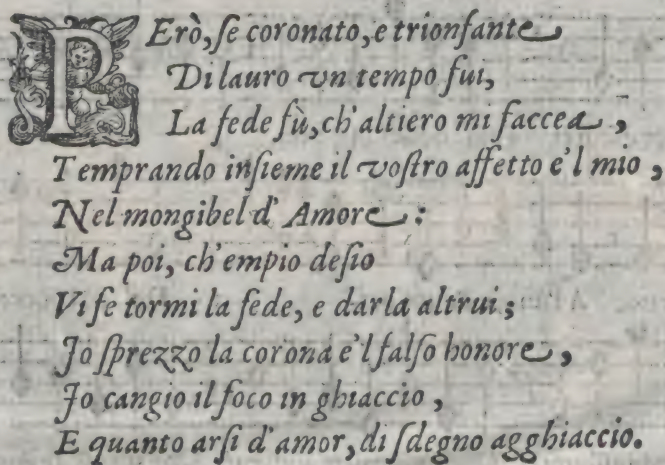 PErò, ſe coronato, e trionfante
Di lauro vn tempo fui,
La fede fù, ch'altiero mi faccea,
Temprando inſieme il voſtro affetto e'l mio,
Nel mongibel d'Amore:
Ma poi, ch'empio deſio
Vi fe tormi la fede, e darla altrui;
Io ſprezzo la corona e'l falſo honore,
Io cangio il foco in ghiaccio,
E quanto arſi d'amor, di ſdegno agghiaccio.